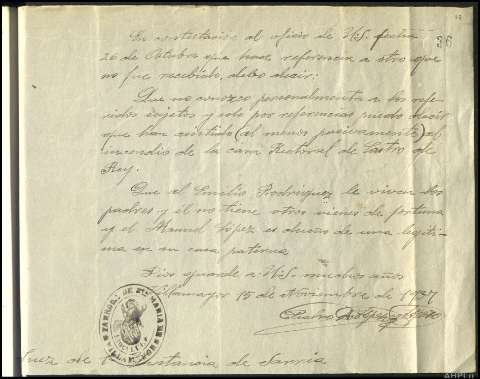 36
En contestación al oficio de V.S. fecha
26 de Octubre que hace referencia a otro que
no fue recibido, debo decir:
Que no conozco personalmente a los refe-
ridos sujetos y solo por referencias puedo decir
que han asistido (al menos pasivamente) al
incendio de la casa Rectoral de Castro de
Rey.
Que al Emilio Rodriguez le viven los
padres y él no tiene otros vienes de fortuna
y el Manuel López es dueño de una legiti-
ma en su casa paterna
Dios guarde a V.S. muchos años
15 de Noviembre de 1937
Juez de Instancia de Sarria
AHPLU